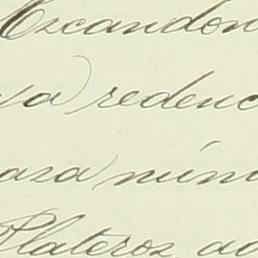 Escandon
va redenc
aza núm
Plateros, ad